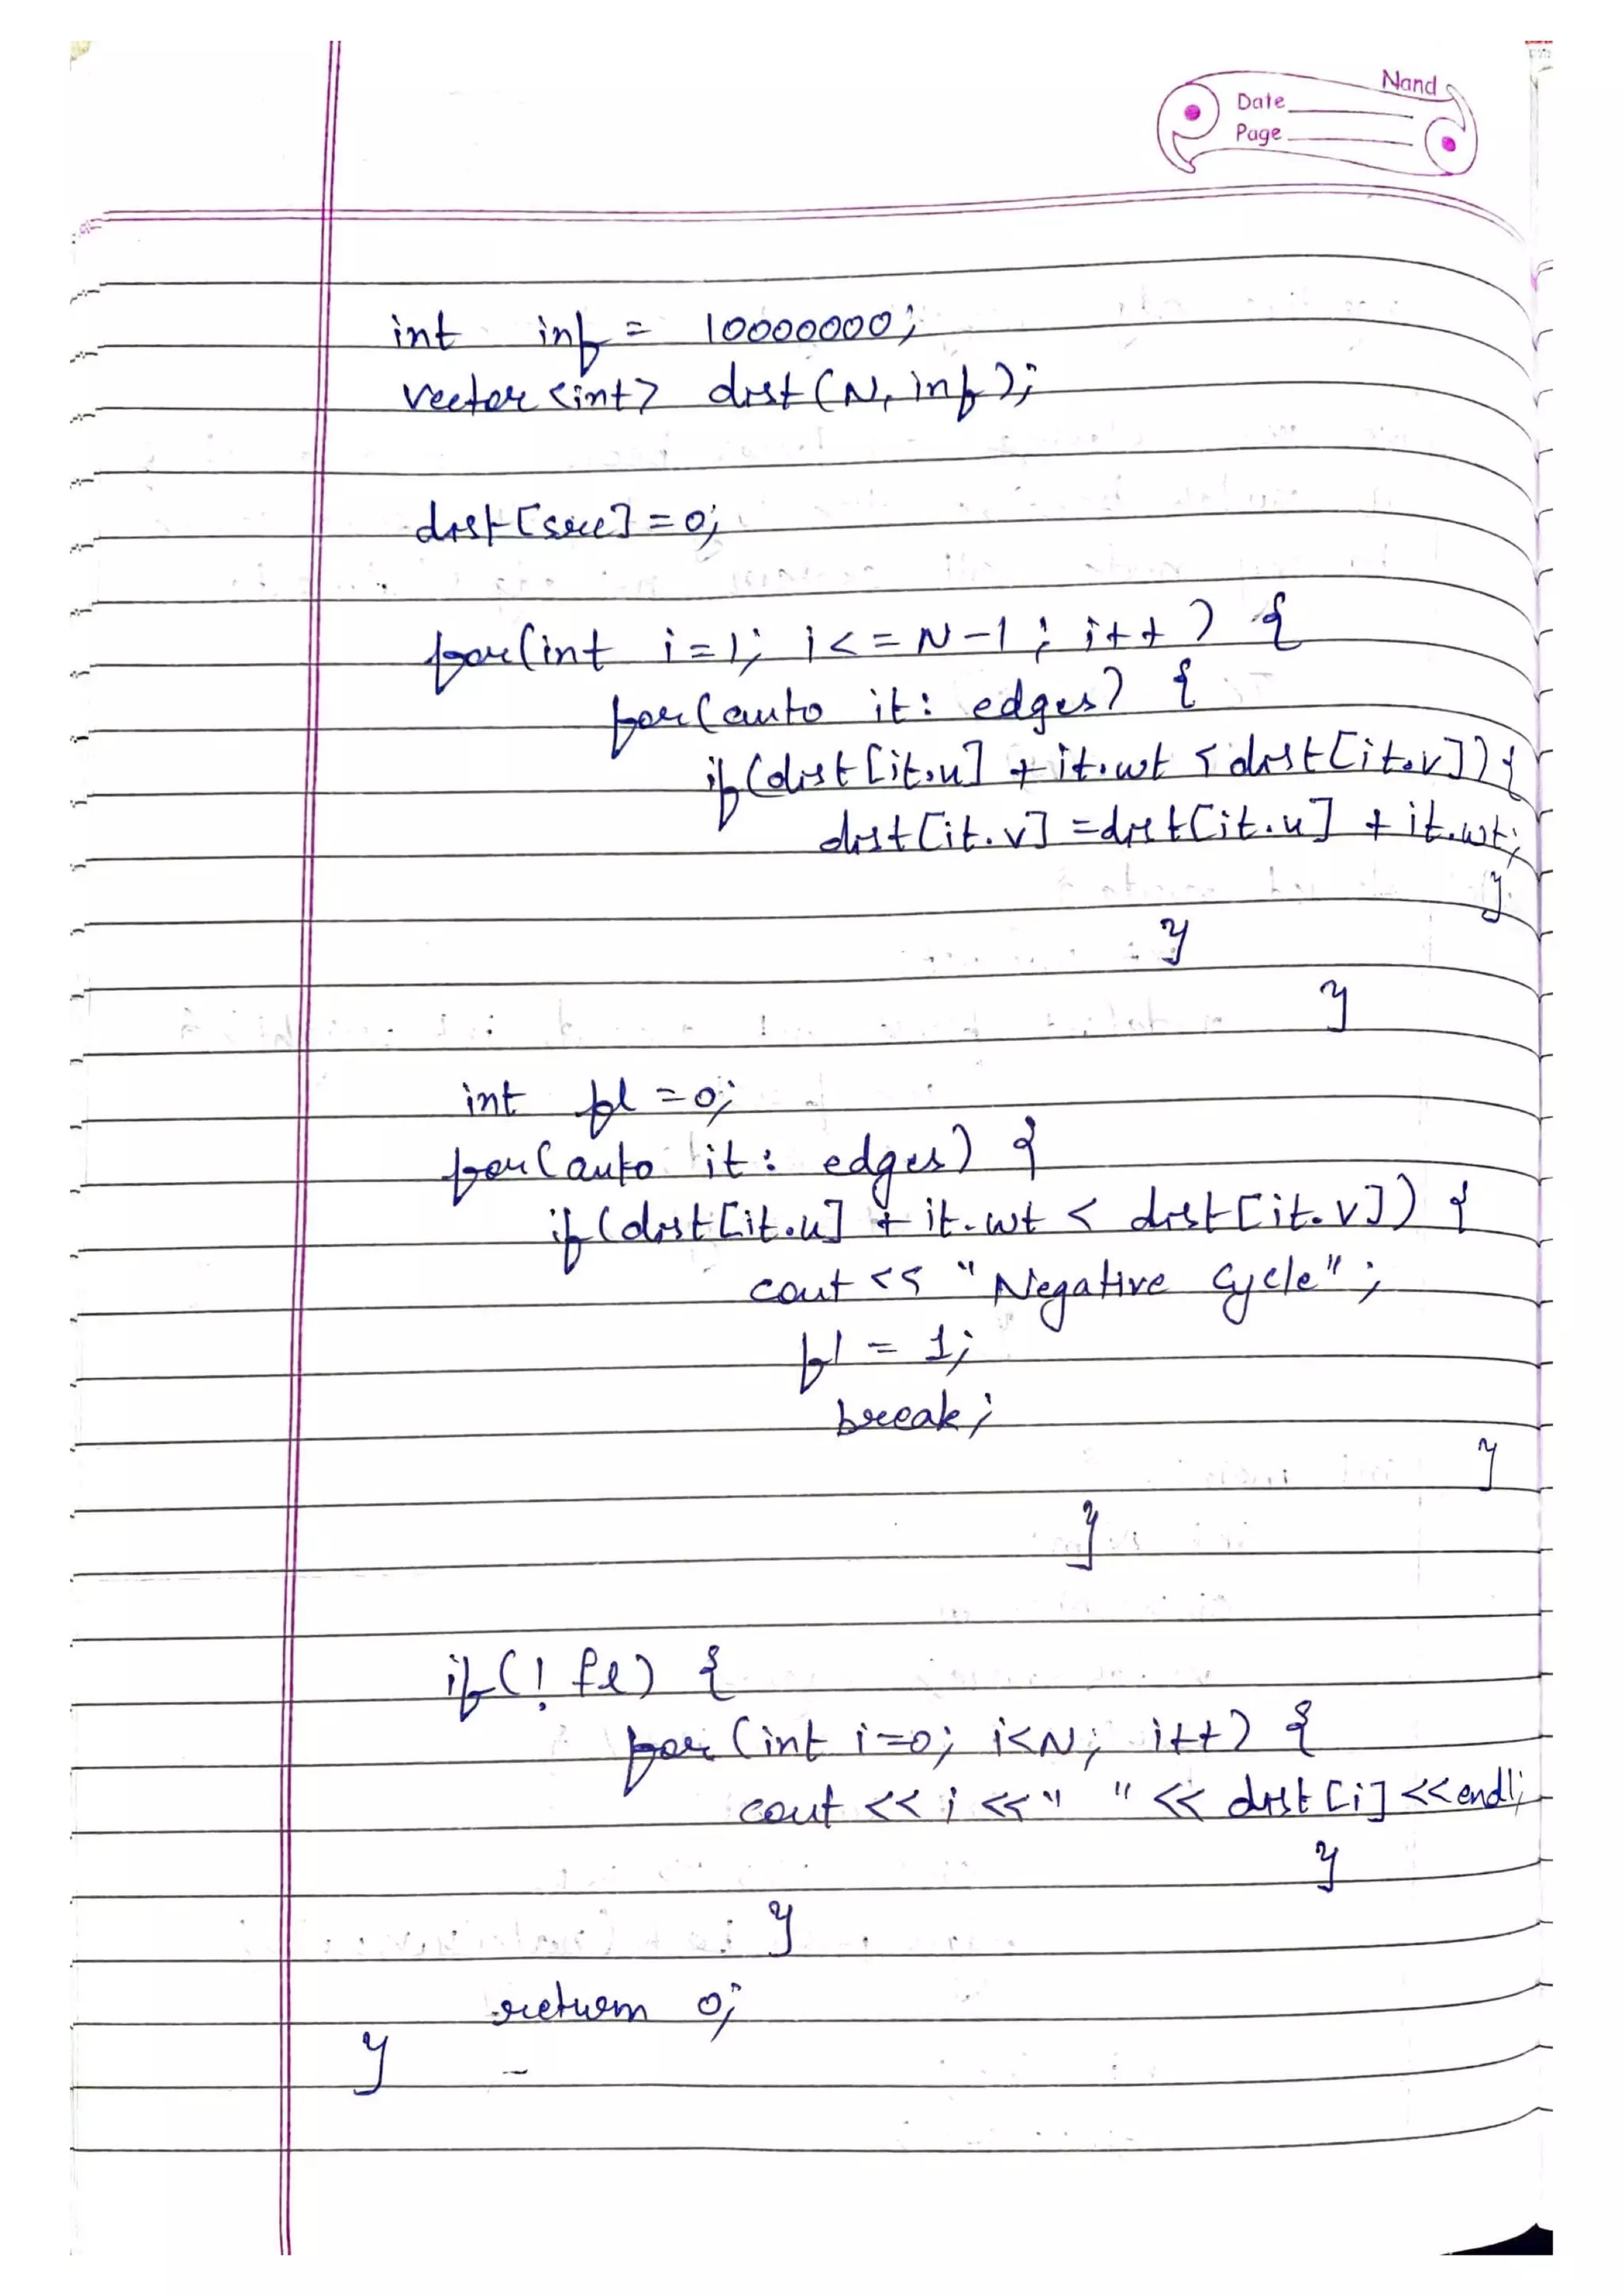 Nand
Date
Page
int inf = 10000000;
vector<int> dist(N, inf);
dist[src] = 0;
for(int i=1; i<=N-1; i++) {
for(auto it: edges) {
if(dist[it.u] + it.wt < dist[it.v]){
dist[it.v] = dist[it.u] + it.wt;
}
}
}
int fl = 0;
for(auto it: edges) {
if(dist[it.u] + it.wt < dist[it.v]) {
cout << "Negative Cycle";
fl = 1;
break;
}
}
if(! fl) {
for (int i=0; i<N; i++) {
cout << i << " " << dist[i] << endl;
}
}
return 0;
}